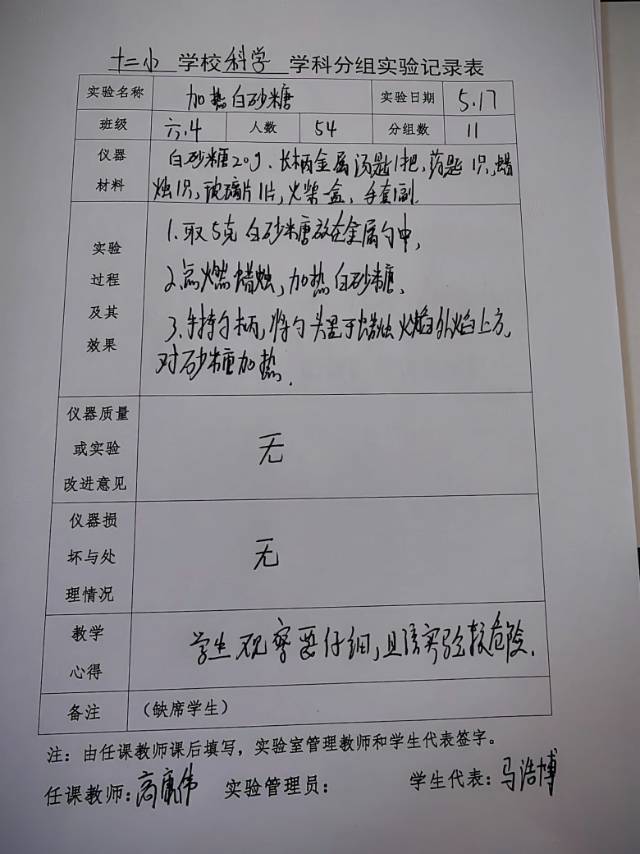 十二小 学校 科学 学科分组实验记录表
实验名称 加热白砂糖 实验日期 5.17
班级 六.4 人数 54 分组数 11
仪器 材料 白砂糖20g、长柄金属汤匙1把,药匙1只,蜡
烛1只,玻璃片1片,火柴一盒,手套1副.
实验 过程 及其 效果 1.取5克白砂糖放在金属勺中,
2.点燃蜡烛,加热白砂糖.
3.手持勺柄,将勺头置于蜡烛火焰外焰上方,
对砂糖加热.
仪器质量 或实验 改进意见 无
仪器损 坏与处 理情况 无
教学 心得 学生观察要仔细,且该实验较危险.
备注 (缺席学生)
注:由任课教师课后填写,实验室管理教师和学生代表签字。
任课教师:高康伟 实验管理员: 学生代表:马浩博